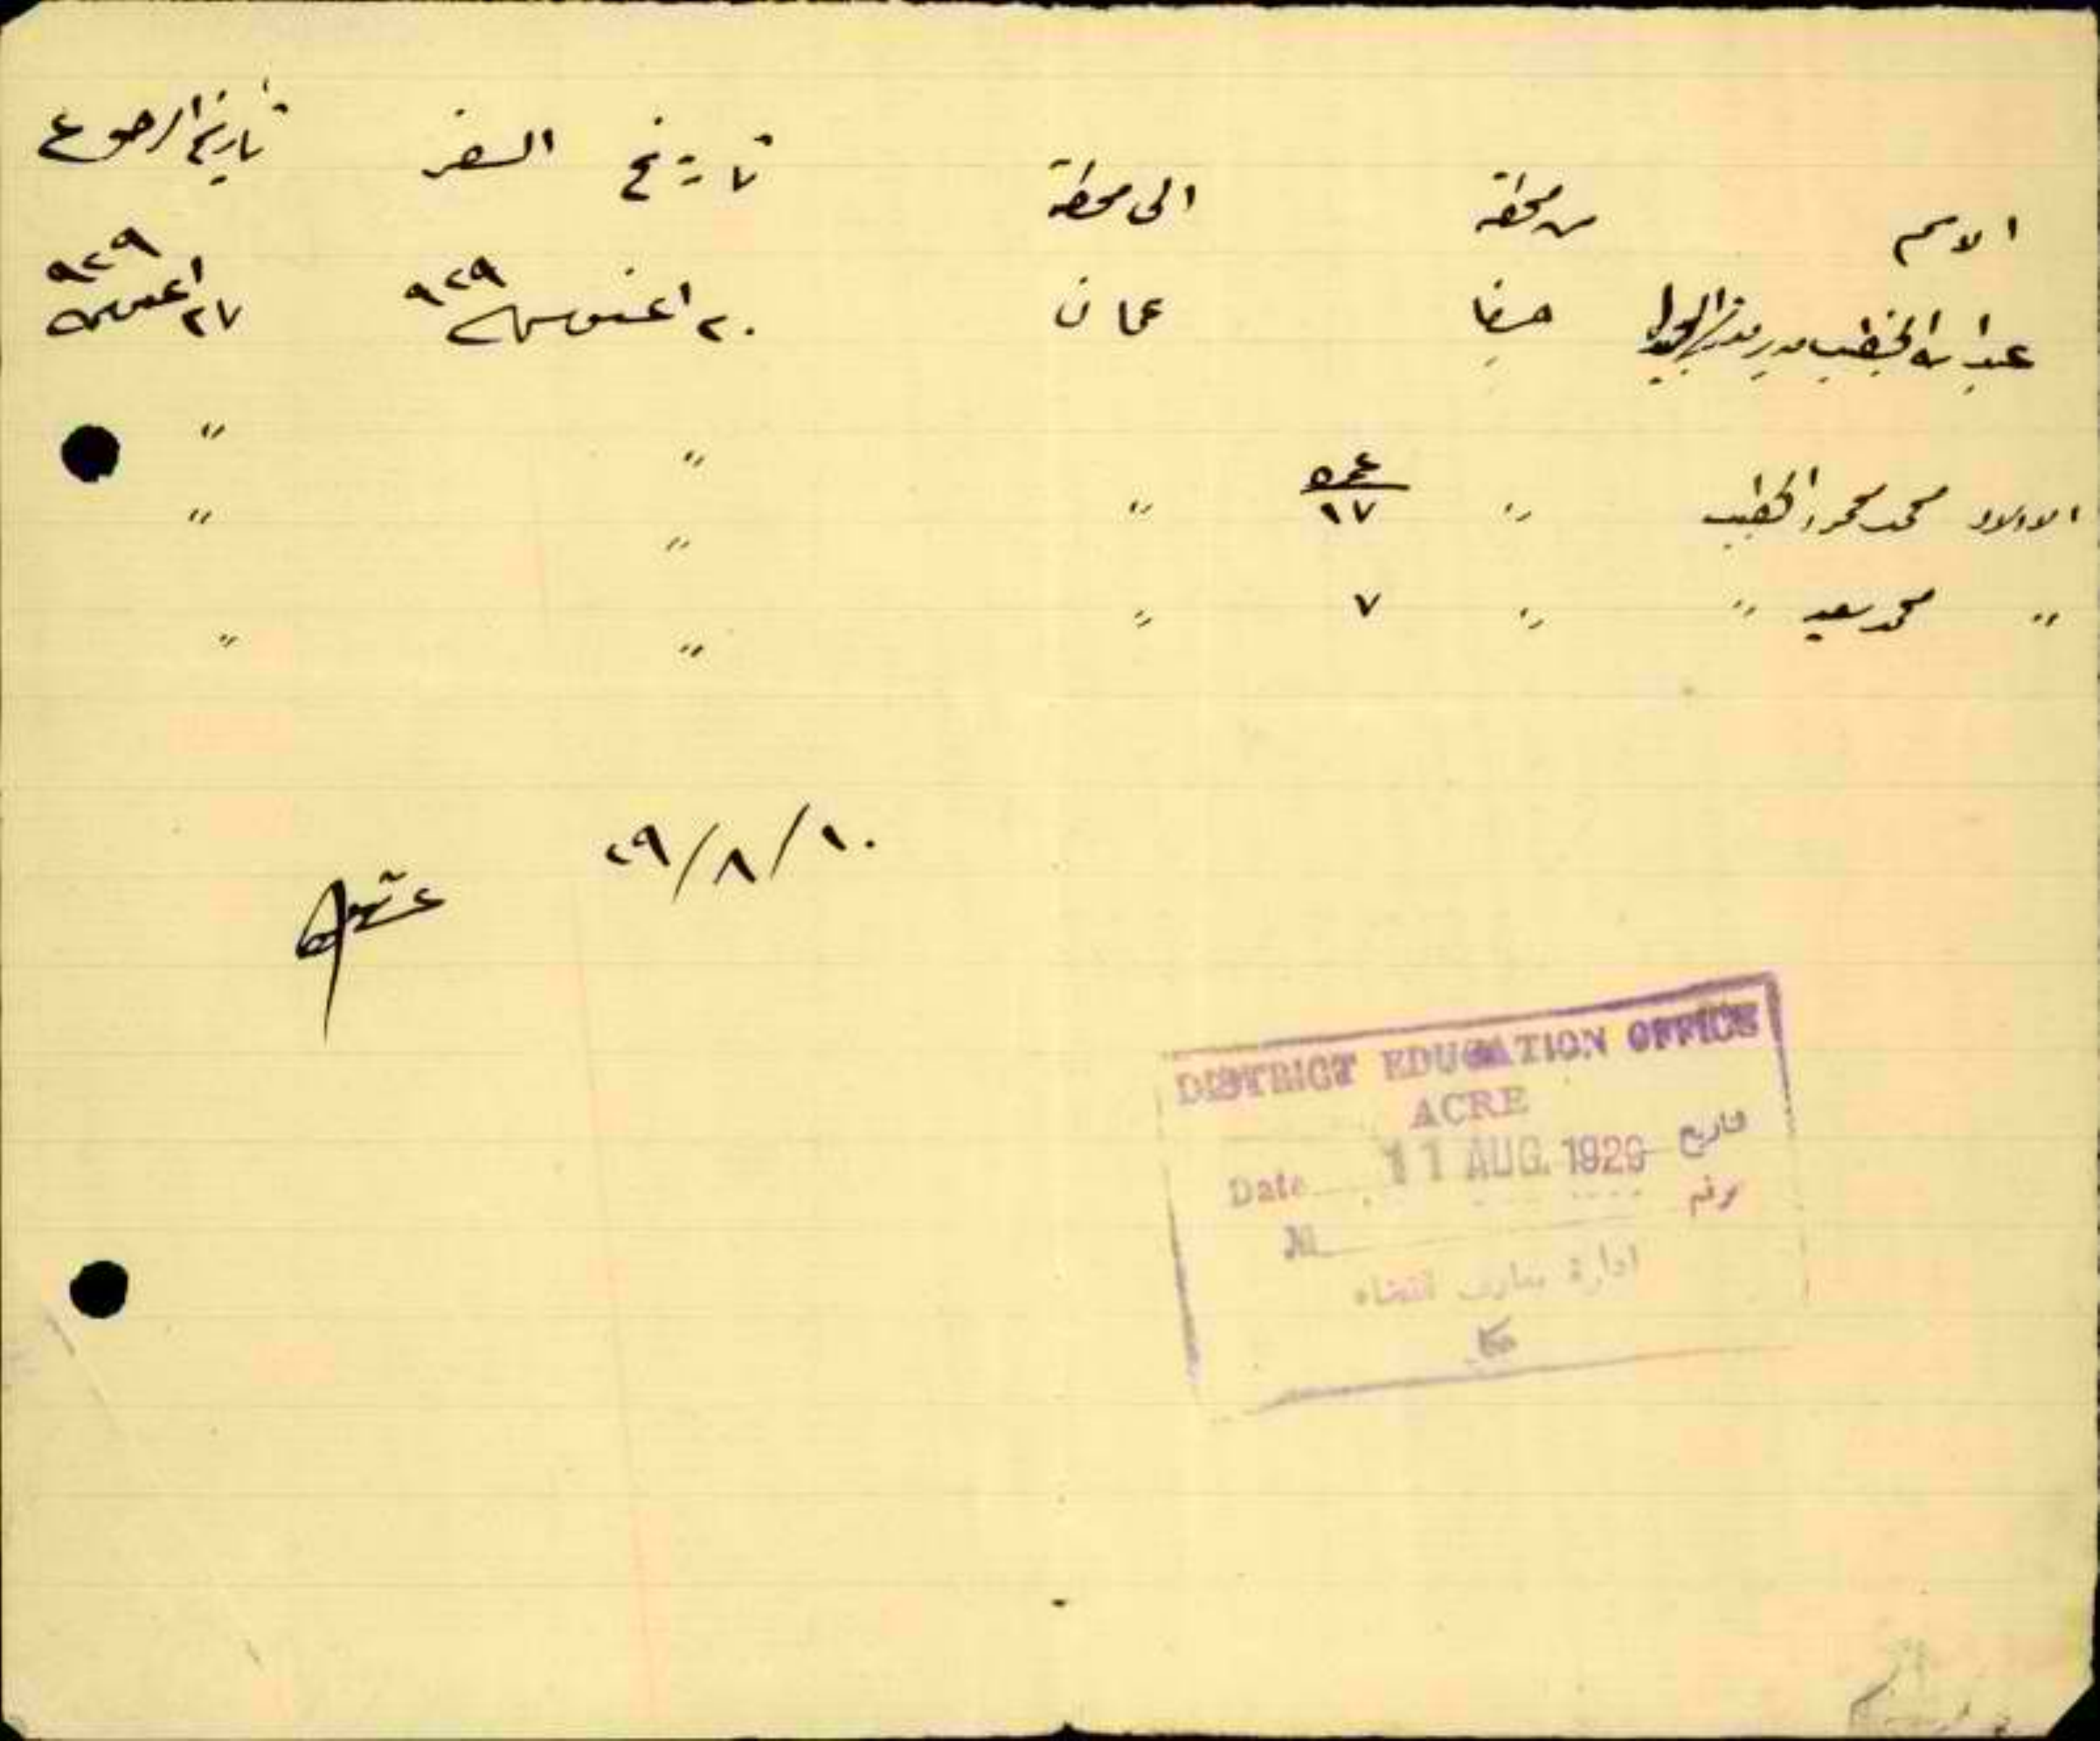 الاسم من محطة الى محطة تاريخ السفر تاريخ الرجوع
عبد الله الخطيب مدير مدرسة حيفا عمان ٢٠ اغسطس ٩٢٩ ٢٧ اغسطس ٩٢٩
" "
الاولاد محمد محمود الخطيب " عمره ١٧ " " "
" محمد سعيد " " ٧ " " "
١٠/٨/٢٩
DISTRICT EDUCATION OFFICE
ACRE
Date 11 AUG. 1929 تاريخ
№ رقم
ادارة معارف قضاء
عكا